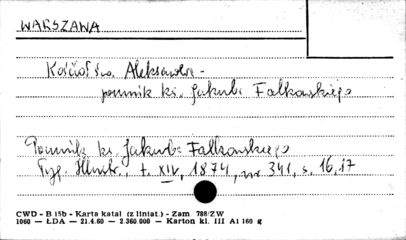 WARSZAWA
Kościół św. Aleksandra -
pomnik ks. Jakuba Falkowskiego
Pomnik ks. Jakuba Falkowskiego
Tyg. Illustr., t. XIV, 1874, nr 341, s. 16, 17
CWD - B 15b - Karta katal (z liniat.) - Zam 788/ZW
1060 — ŁDA — 21.4.60 — 2.360.000 — Karton kl. III A1 160 g